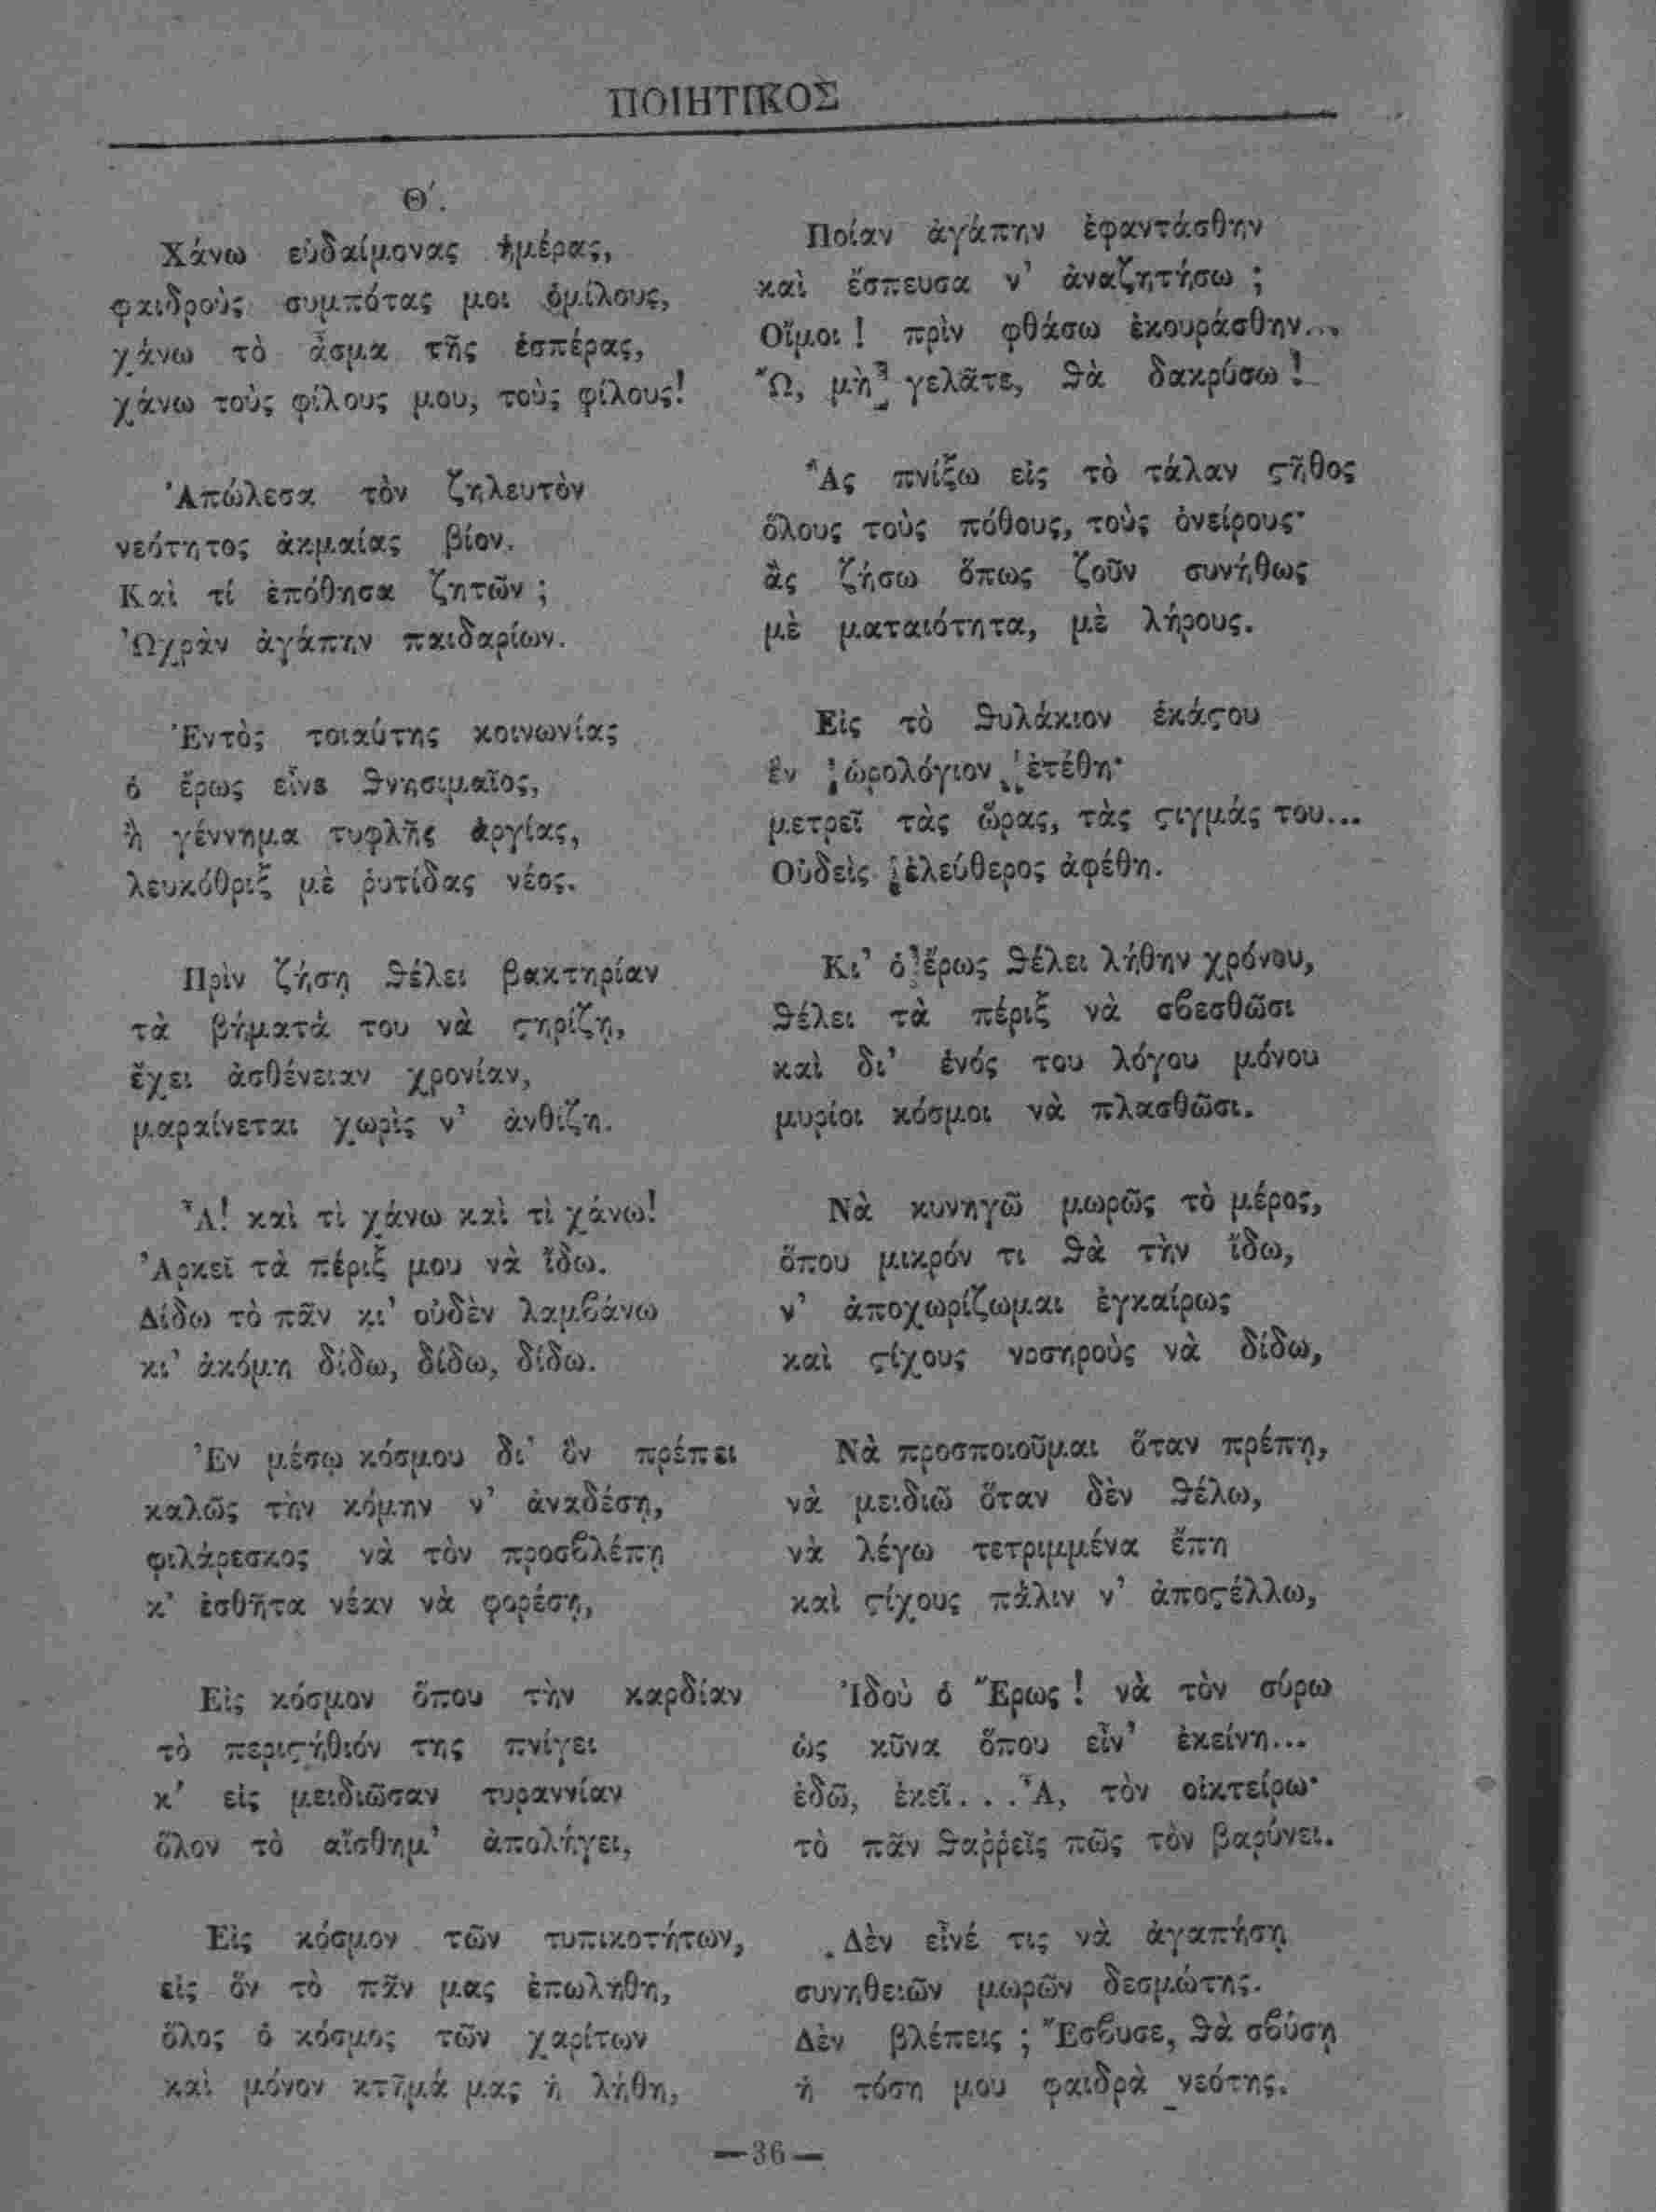 ΠΟΙΗΤΙΚΟΣ
Θ΄.
Χάνω εὐδαίμονας ἡμέρας,
φαιδροὺς συμπότας μοι ὁμίλους,
χάνω τὸ ᾆσμα τῆς ἑσπέρας,
χάνω τοὺς φίλους μου, τοὺς φίλους!
Ἀπώλεσα τὸν ζηλευτὸν
νεότητος ἀκμαίας βίον.
Καὶ τί ἐπόθησα ζητῶν ;
Ὠχρὰν ἀγάπην παιδαρίων.
Ἐντὸς τοιαύτης κοινωνίας
ὁ ἔρως εἶνε θνησιμαῖος,
ἢ γέννημα τυφλῆς ἀργίας,
λευκόθριξ μὲ ῥυτίδας νέος.
Πρὶν ζήσῃ θέλει βακτηρίαν
τὰ βήματά του νὰ ϛηρίζῃ,
ἔχει ἀσθένειαν χρονίαν,
μαραίνεται χωρὶς ν' ἀνθίζη.
Ἆ! καὶ τὶ χάνω καὶ τὶ χάνω!
Ἀρκεῖ τὰ πέριξ μου νὰ ἴδω.
Δίδω τὸ πᾶν κι' οὐδὲν λαμβάνω
κι' ἀκόμη δίδω, δίδω, δίδω.
Ἐν μέσῳ κόσμου δι' ὃν πρέπει
καλῶς τὴν κόμην ν' ἀναδέσῃ,
φιλάρεσκος νὰ τὸν προσβλέπῃ
κ' ἐσθῆτα νέαν νὰ φορέσῃ,
Εἰς κόσμον ὅπου τὴν καρδίαν
τὸ περιϛήθιόν της πνίγει
κ' εἰς μειδιῶσαν τυραννίαν
ὅλον τὸ αἴσθημ' ἀπολήγει,
Εἰς κόσμον τῶν τυπικοτήτων,
εἰς ὃν τὸ πᾶν μας ἐπωλήθη,
ὅλος ὁ κόσμος τῶν χαρίτων
καὶ μόνον κτῆμά μας ἡ λήθη,
Ποίαν ἀγάπην ἐφαντάσθην
καὶ ἔσπευσα ν' ἀναζητήσω ;
Οἴμοι ! πρὶν φθάσω ἐκουράσθην...
Ὤ, μὴ γελᾶτε, θὰ δακρύσω !
Ἂς πνίξω εἰς τὸ τάλαν ϛῆθος
ὅλους τοὺς πόθους, τοὺς ὀνείρους·
ἂς ζήσω ὅπως ζοῦν συνήθως
μὲ ματαιότητα, μὲ λήρους.
Εἰς τὸ θυλάκιον ἑκάϛου
ἓν ὡρολόγιον ἐτέθη·
μετρεῖ τὰς ὥρας, τὰς ϛιγμάς του...
Οὐδεὶς ἐλεύθερος ἀφέθη.
Κι' ὁ ἔρως θέλει λήθην χρόνου,
θέλει τὰ πέριξ νὰ σβεσθῶσι
καὶ δι' ἑνός του λόγου μόνου
μυρίοι κόσμοι νὰ πλασθῶσι.
Νὰ κυνηγῶ μωρῶς τὸ μέρος,
ὅπου μικρόν τι θὰ τὴν ἴδω,
ν' ἀποχωρίζωμαι ἐγκαίρως
καὶ ϛίχους νοσηροὺς νὰ δίδω,
Νὰ προσποιοῦμαι ὅταν πρέπῃ,
νὰ μειδιῶ ὅταν δὲν θέλω,
νὰ λέγω τετριμμένα ἔπη
καὶ ϛίχους πάλιν ν' ἀποϛέλλω,
Ἰδοὺ ὁ Ἔρως ! νὰ τὸν σύρω
ὡς κῦνα ὅπου εἶν' ἐκείνη...
ἐδῶ, ἐκεῖ... Ἆ, τὸν οἰκτείρω·
τὸ πᾶν θαῤῥεῖς πῶς τὸν βαρύνει.
Δὲν εἶνέ τις νὰ ἀγαπήσῃ
συνηθειῶν μωρῶν δεσμώτης.
Δὲν βλέπεις ; Ἔσβυσε, θὰ σβύσῃ
ἡ τόση μου φαιδρὰ νεότης.
—36—